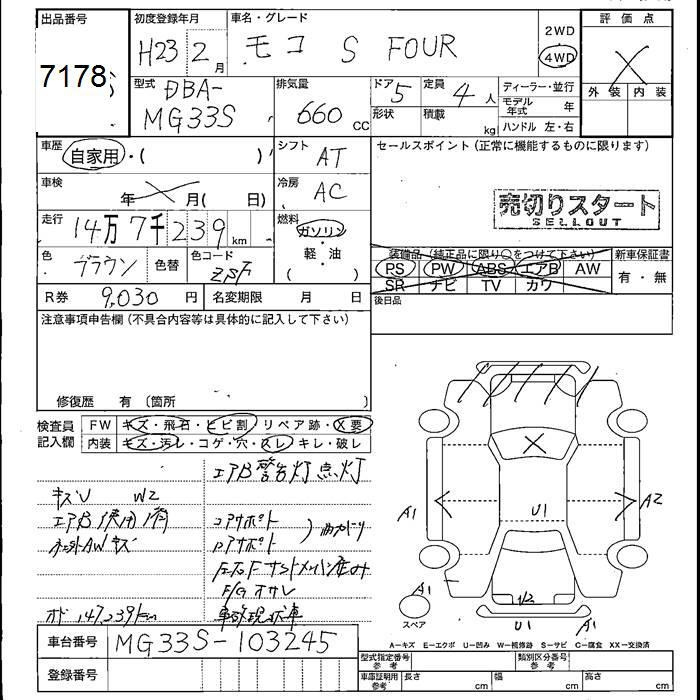 出品番号 初度登録年月 車名・グレード 2WD 評価点
7178 H23 2月 モコ S FOUR 4WD
型式 排気量 ドア 定員 ディーラー・並行 外装 内装
DBA- 5 4人 モデル年式 年
MG33S 660cc 形状 積載 kg ハンドル 左・右
車歴 自家用・( ) シフト AT セールスポイント(正常に機能するものに限ります)
車検 年 月( 日) 冷房 AC
売切りスタート
SELLOUT
走行 14万7千239km 燃料 ガソリン・軽・油( )
色 ブラウン 色替 色コード
装備品(純正品に限り○をつけて下さい) 新車保証書
PS PW ABS エアB AW 有・無
SR ナビ TV カワ
R券 9,030円 名変期限 月 日 後日品
注意事項申告欄(不具合内容等は具体的に記入して下さい)
修復歴 有(箇所 )
検査員記入欄 FW キズ・飛石・ヒビ割 リペア跡・X要
内装 キズ・汚レ・コゲ・穴・スレ・キレ・破レ
エアB警告灯点灯
キズU W2
エアB使用済 コアサポート
AWキズ
F/Gオサレ
147,239km 事故現状車
A1 U1 A2
A1 A1
スペア U1
A=キズ E=エクボ U=凹み W=補修跡 S=サビ C=腐食 XX=交換済
車台番号 MG33S-103245
登録番号
型式指定番号 参考 類別区分番号 参考
車庫証明用 参考 長さ cm 幅 cm 高さ cm